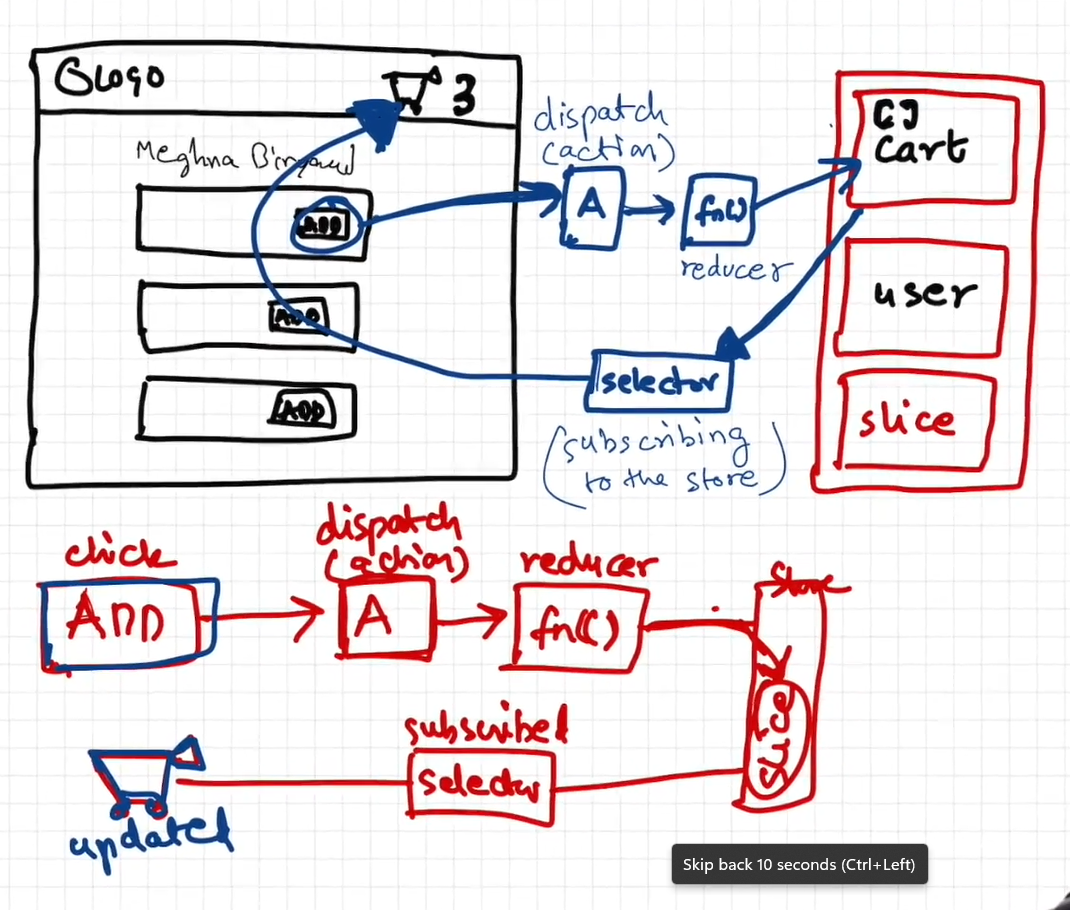 Logo
3
Meghna Biryani
ADD
ADD
ADD
dispatch
(action)
A
fn()
reducer
selector
(subscribing
to the store)
Cart
user
slice
click
ADD
dispatch
(action)
A
reducer
fn()
Store
slice
subscribed
selector
updated
Skip back 10 seconds (Ctrl+Left)